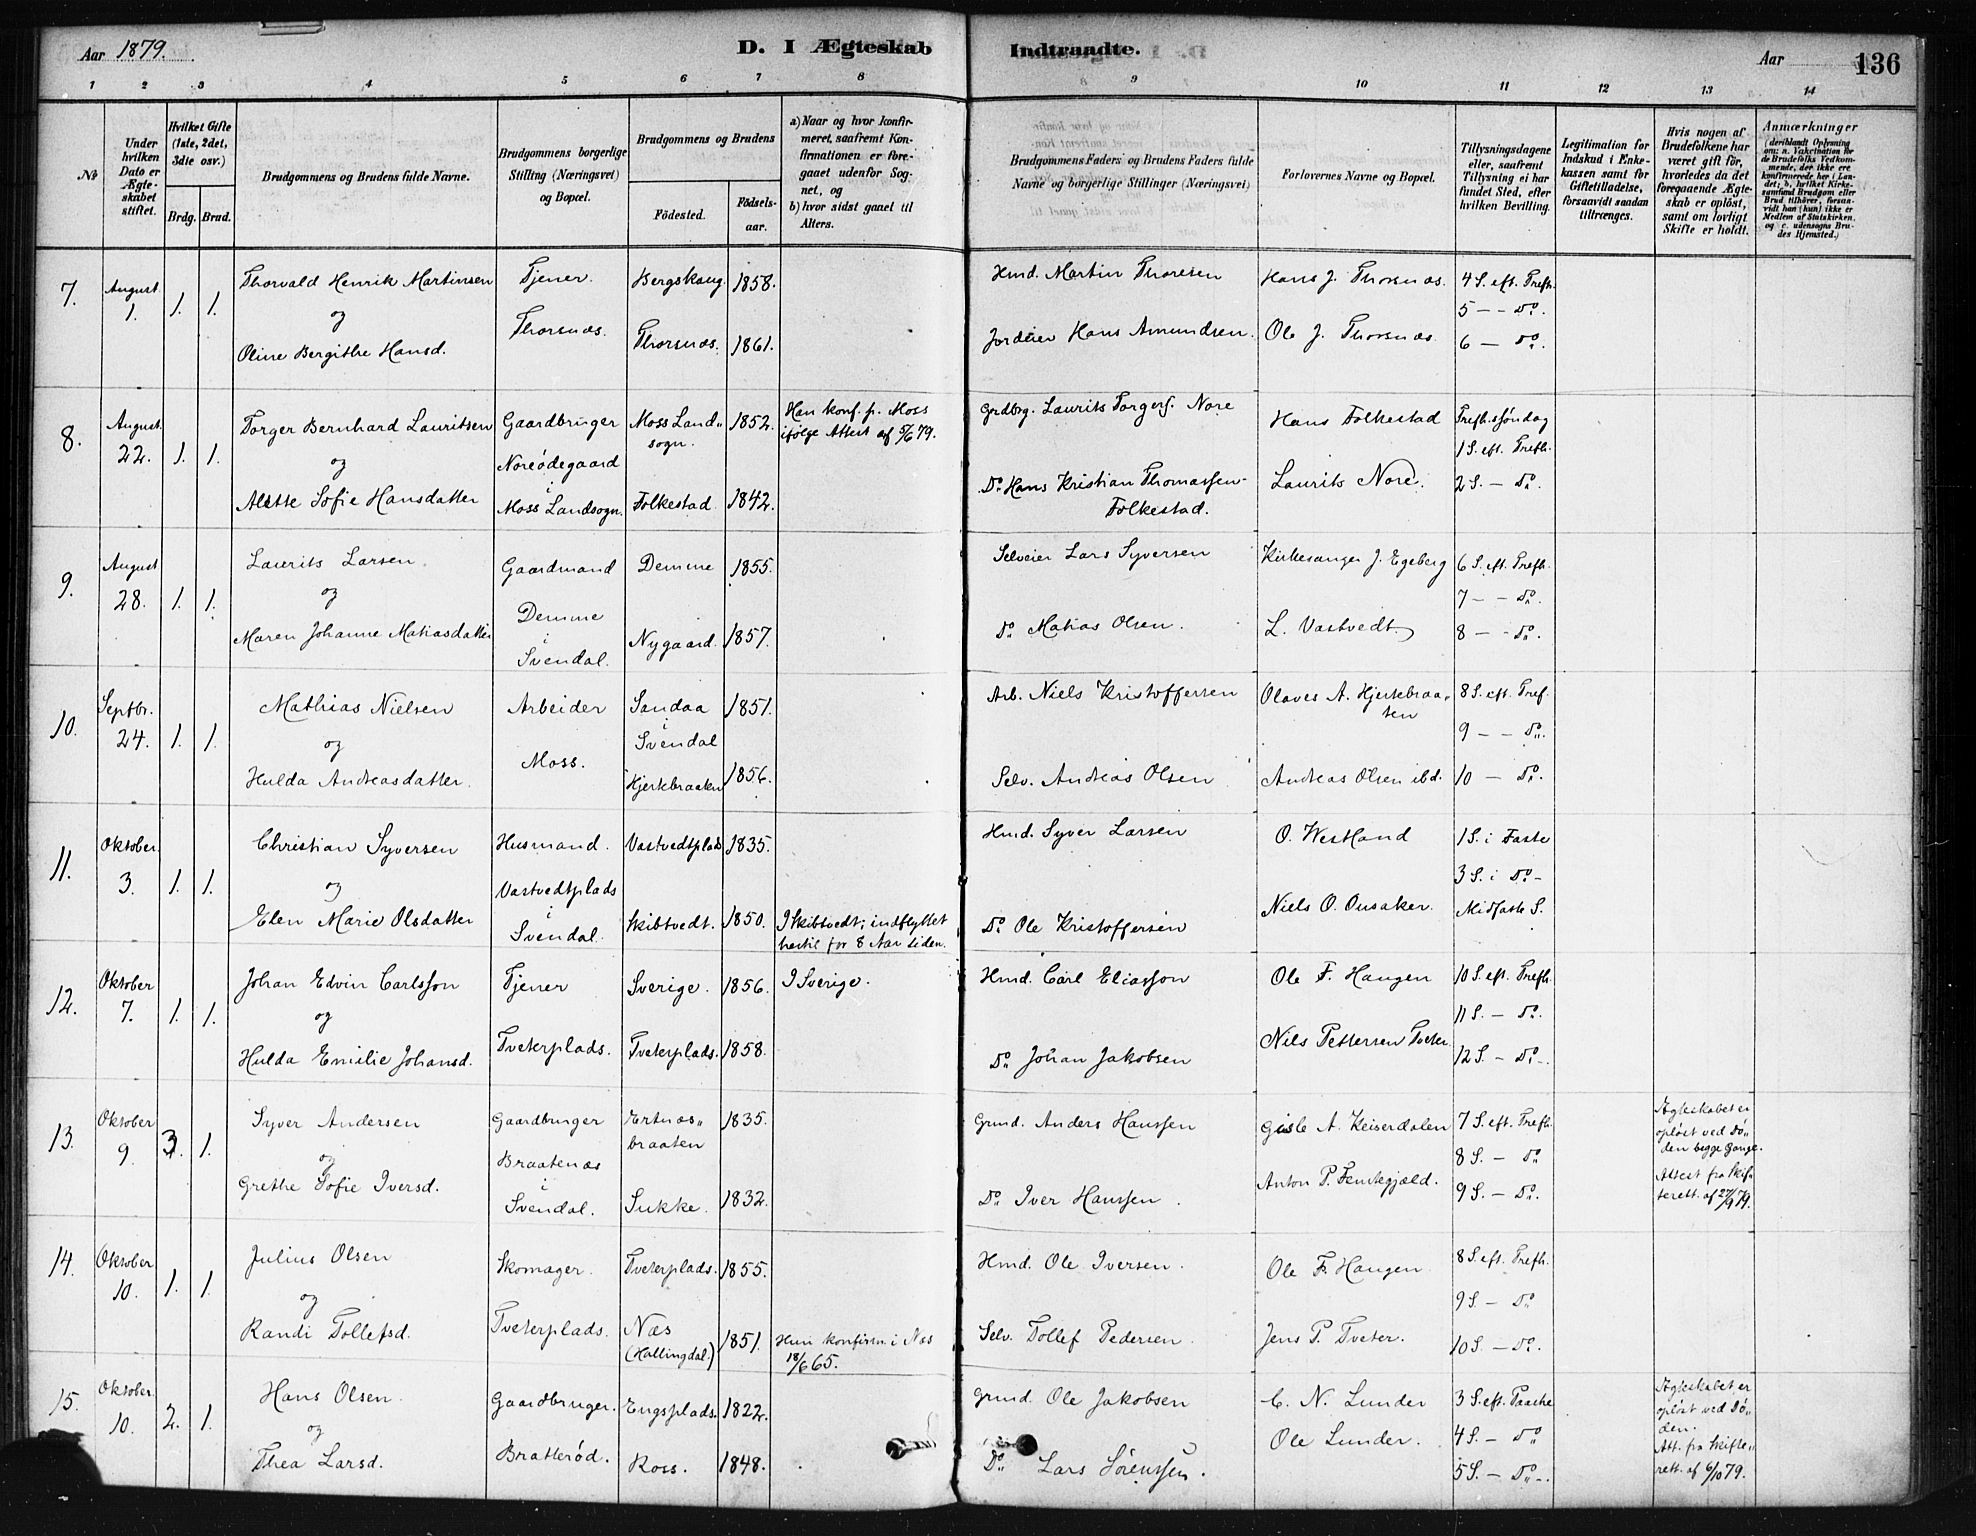 Aar 1879.
D. I Ægteskab Indtraadte.
Aar
136
1 2 3 4 5 6 7 8 9 10 11 12 13 14
No
Under hvilken Dato er Ægteskabet stiftet.
Hvilket Gifte (1ste, 2det, 3die osv.)
Brdg. Brud.
Brudgommens og Brudens fulde Navne.
Brudgommens borgerlige Stilling (Næringsvei) og Bopæl.
Brudgommens og Brudens
Födested.
Födsels-aar.
a) Naar og hvor konfirmeret, saafremt Konfirmationen er foregaaet udenfor Sognet, og
b) hvor sidst gaaet til Alters.
Brudgommens Faders og Brudens Faders fulde Navne og borgerlige Stillinger (Næringsvei)
Forlovernes Navne og Bopæl.
Tillysningsdagene eller, saafremt Tillysning ei har fundet Sted, efter hvilken Bevilling.
Legitimation for Indskud i Enkekassen samt for Giftetilladelse, forsaavidt saadan tiltrænges.
Hvis nogen af Brudefolkene har været gift för, hvorledes da det foregaaende Ægteskab er oplöst, samt om lovligt Skifte er holdt.
Anmærkninger (deriblandt Oplysning om: a. Vakcination for de Brudefolks Vedkommende, der ikke ere konfirmerede her i Landet; b. hvilket Kirkesamfund Brudgom eller Brud tilhörer, forsaavidt han (hun) ikke er Medlem af Statskirken, og c. udensogns Brudes Hjemsted.)
7. August 1. 1. 1.
Thorvald Henrik Martinsen
og
Oline Bergithe Hansd.
Tjener.
Thorsnæs.
Bergskaug. 1858.
Thorsnæs. 1861.
Hmd. Martin Thoresen
Jordeier Hans Amundsen.
Hans J. Thorsnæs.
Ole J. Thorsnæs.
4 S. eft. Trefh.
5 — — Do.
6 — Do.
8. August 22. 1. 1.
Torger Bernhard Lauritsen
og
Alette Sofie Hansdatter
Gaardbruger
Noreødegaard
i
Moss Landsogn.
Moss Landsogn. 1852.
Folkestad. 1842.
Han konf. p. Moss
ifølge Attest af 5/6 79.
Grdbrg. Laurits Torgers. Nore
Do. Hans Kristian Thomassen-
Folkestad.
Hans Folkestad
Laurits Nore.
Trefh.søndag
1 S. eft. Trefh.
2 S. — Do.
9. August 28. 1. 1.
Laurits Larsen.
og
Maren Johanne Matiasdatter
Gaardmand
Demme
i
Svendal.
Demme 1855.
Nygaard. 1857.
Selveier Lars Syversen
Do. Matias Olsen.
Kirkesanger J. Egeberg
L. Vastvedt.
6 S. eft. Trefh.
7 — — Do.
8 — — Do.
10. Septbr. 24. 1. 1.
Mathias Nielsen
og
Hulda Andreasdatter.
Arbeider
Moss.
Sandaa
i
Svendal 1851.
Hjertebraaten 1856.
Arb. Niels Kristoffersen
Selv. Andreas Olsen
Olaves A. Hjertebraaten
Andreas Olsen ibd.
8 S. eft. Tref.
9 — — Do.
10 — Do.
11. Oktober 3. 1. 1.
Christian Syversen
og
Elen Marie Olsdatter
Husmand.
Vastvedtplads
i
Svendal.
Vastvedtplads 1835.
Skibtvedt. 1850.
I Skibtvedt; indflyttet
hertil for 8 Aar siden.
Hmd. Syver Larsen
Do. Ole Kristoffersen
O. Westland
Niels O. Ousaker.
1 S. i Faste
3 S. i Do.
Midfaste S.
12. Oktober 7. 1. 1.
Johan Edvin Carlsson
og
Hulda Emilie Johansd.
Tjener
Tveterplads.
Sverige. 1856.
Tveterplads. 1858.
I Sverige.
Hmd. Carl Eliasson
Do. Johan Jakobsen
Ole F. Haugen
Nils Pettersen Tveter
10 S. eft. Trefh.
11 S. — Do.
12 S. — Do.
13. Oktober 9. 3. 1.
Syver Andersen
og
Grethe Sofie Iversd.
Gaardbruger
Braatenæs
i
Svendal.
Ertnæsbraaten 1835.
Sukke. 1832.
Grmd. Anders Hanssen
Do. Iver Hanssen.
Gisle A. Keiserdalen
Anton P. Femtegjæld.
7 S. eft. Trefh.
8 S. — Do
9 S. — Do.
Ægteskabet er
opløst ved Døden begge Gange.
Attest fra Skifterett. af 27/9 79.
14. Oktober 10. 1. 1.
Julius Olsen
og
Randi Tollefsd.
Skomager.
Tveterplads.
Tveterplads. 1855.
Næs (Hallingdal) 1851.
Hun konfirm. i Næs
18/6 65.
Hmd. Ole Iversen.
Selv. Tollef Pedersen.
Ole F. Haugen.
Jens P. Tveter.
8 S. eft. Trefh.
9 S. — Do
10 S. — Do.
15. Oktober 10. 2. 1.
Hans Olsen.
og
Thea Larsd.
Gaardbruger.
Bratterød.
Engsplads. 1822.
Ross. 1848.
Grmd. Ole Jakobsen
Do Lars Sörenssen.
C. N. Lunder
Ole Lunder.
3 S. eft. Paaske
4 S. — Do
5 S. — Do.
Ægteskabet er
opløst ved Døden.
Att. fra Skifterett. af 6/10 79.